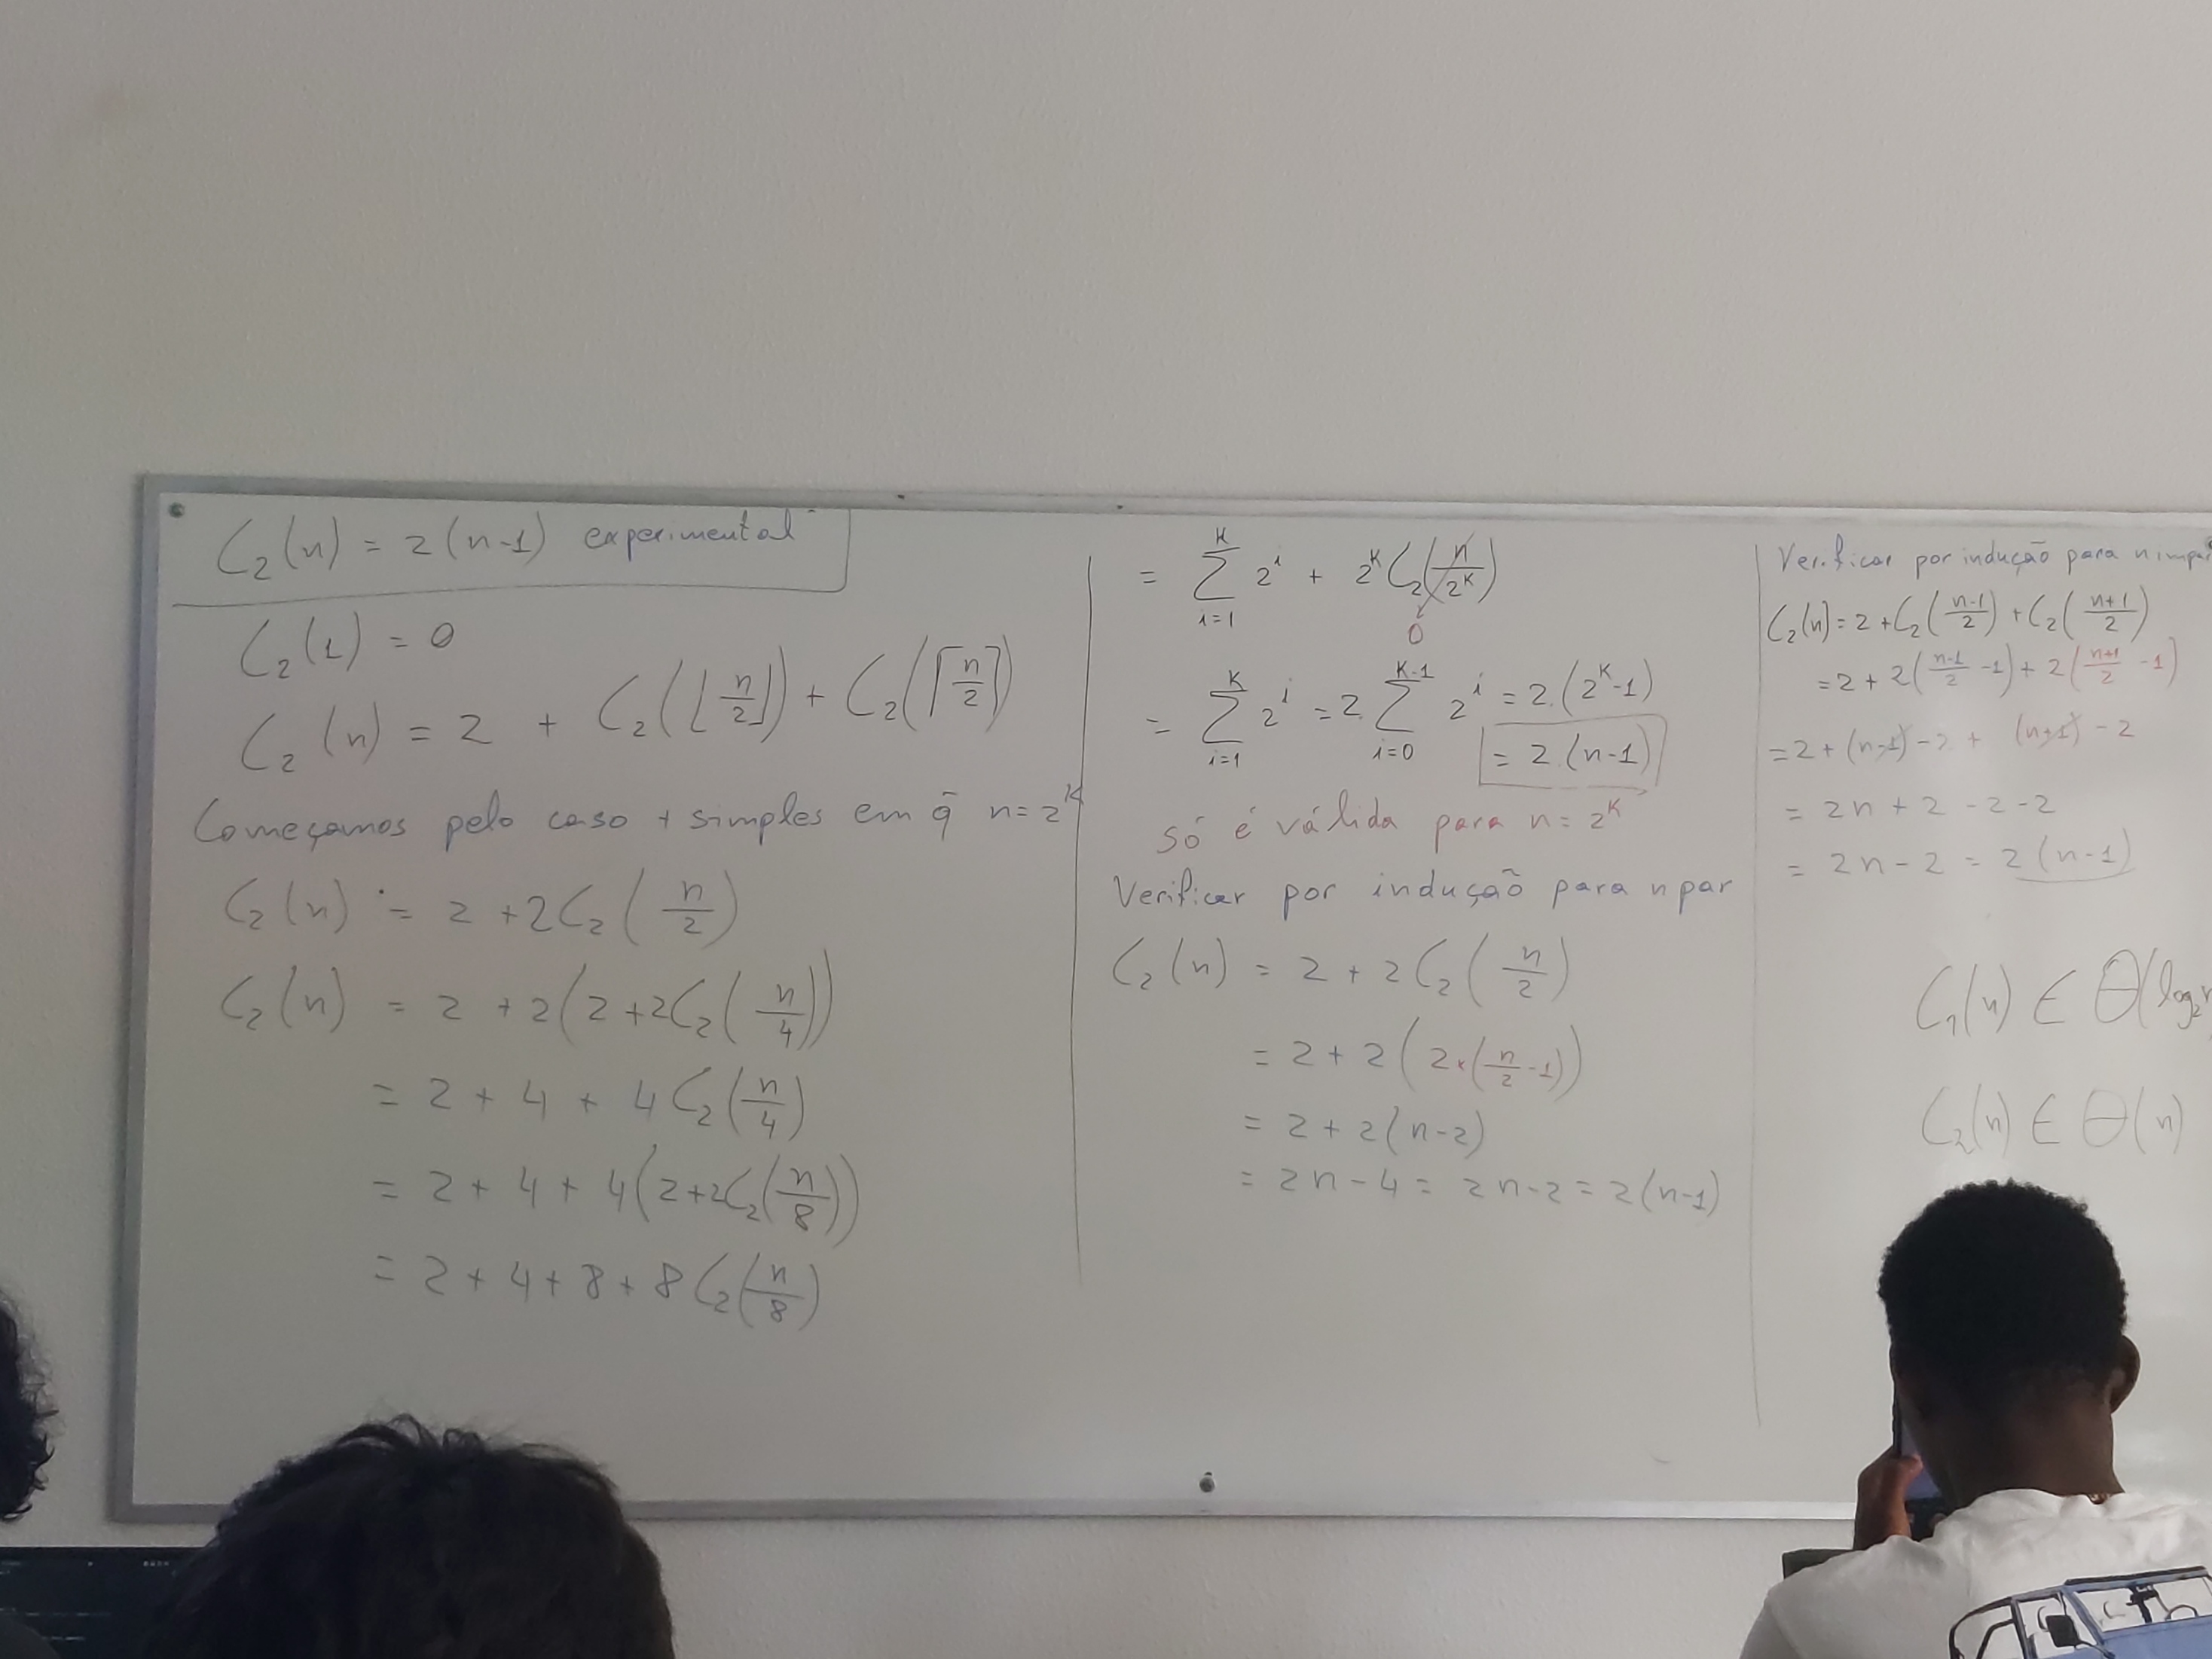 C₂(n) = 2(n-1) experimental
C₂(1) = 0
C₂(n) = 2 + C₂(⌊n/2⌋) + C₂(⌈n/2⌉)
Começamos pelo caso + simples em q̄ n=2^k
C₂(n) = 2 + 2C₂(n/2)
C₂(n) = 2 + 2(2+2C₂(n/4))
= 2 + 4 + 4C₂(n/4)
= 2 + 4 + 4(2+2C₂(n/8))
= 2 + 4 + 8 + 8C₂(n/8)
= ∑_{i=1}^{k} 2^i + 2^k C₂(n/2^k)
0
= ∑_{i=1}^{k} 2^i = 2.∑_{i=0}^{k-1} 2^i = 2.(2^k-1)
= 2.(n-1)
só é válida para n=2^k
Verificar por indução para n par
C₂(n) = 2 + 2C₂(n/2)
= 2 + 2(2×(n/2-1))
= 2 + 2(n-2)
= 2n-4 = 2n-2 = 2(n-1)
Verificar por indução para n impar
C₂(n) = 2 + C₂((n-1)/2) + C₂((n+1)/2)
= 2 + 2((n-1)/2 -1) + 2((n+1)/2 -1)
= 2 + (n-1) -2 + (n+1) -2
= 2n + 2 -2 -2
= 2n-2 = 2(n-1)
C₁(n) ∈ Θ(log₂n
C₂(n) ∈ Θ(n)